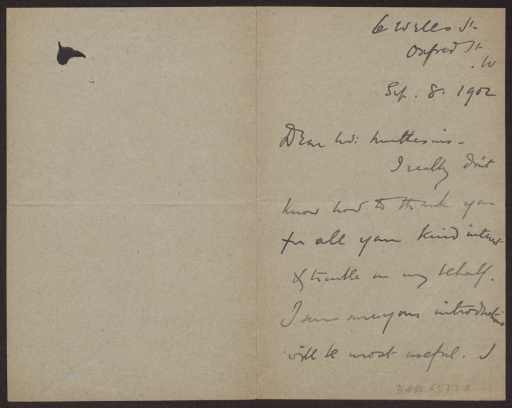 6 Wells St.
Oxford St.
W
Sep. 8. 1902
Dear Mr. Muthesius -
I really don't
know how to thank you
for all your kind interest
& trouble on my behalf.
I am sure your introductions
will be most useful. I